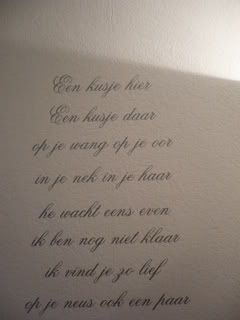 Een kusje hier
Een kusje daar
op je wang op je oor
in je nek in je haar
he wacht eens even
ik ben nog niet klaar
ik vind je zo lief
op je neus ook een paar